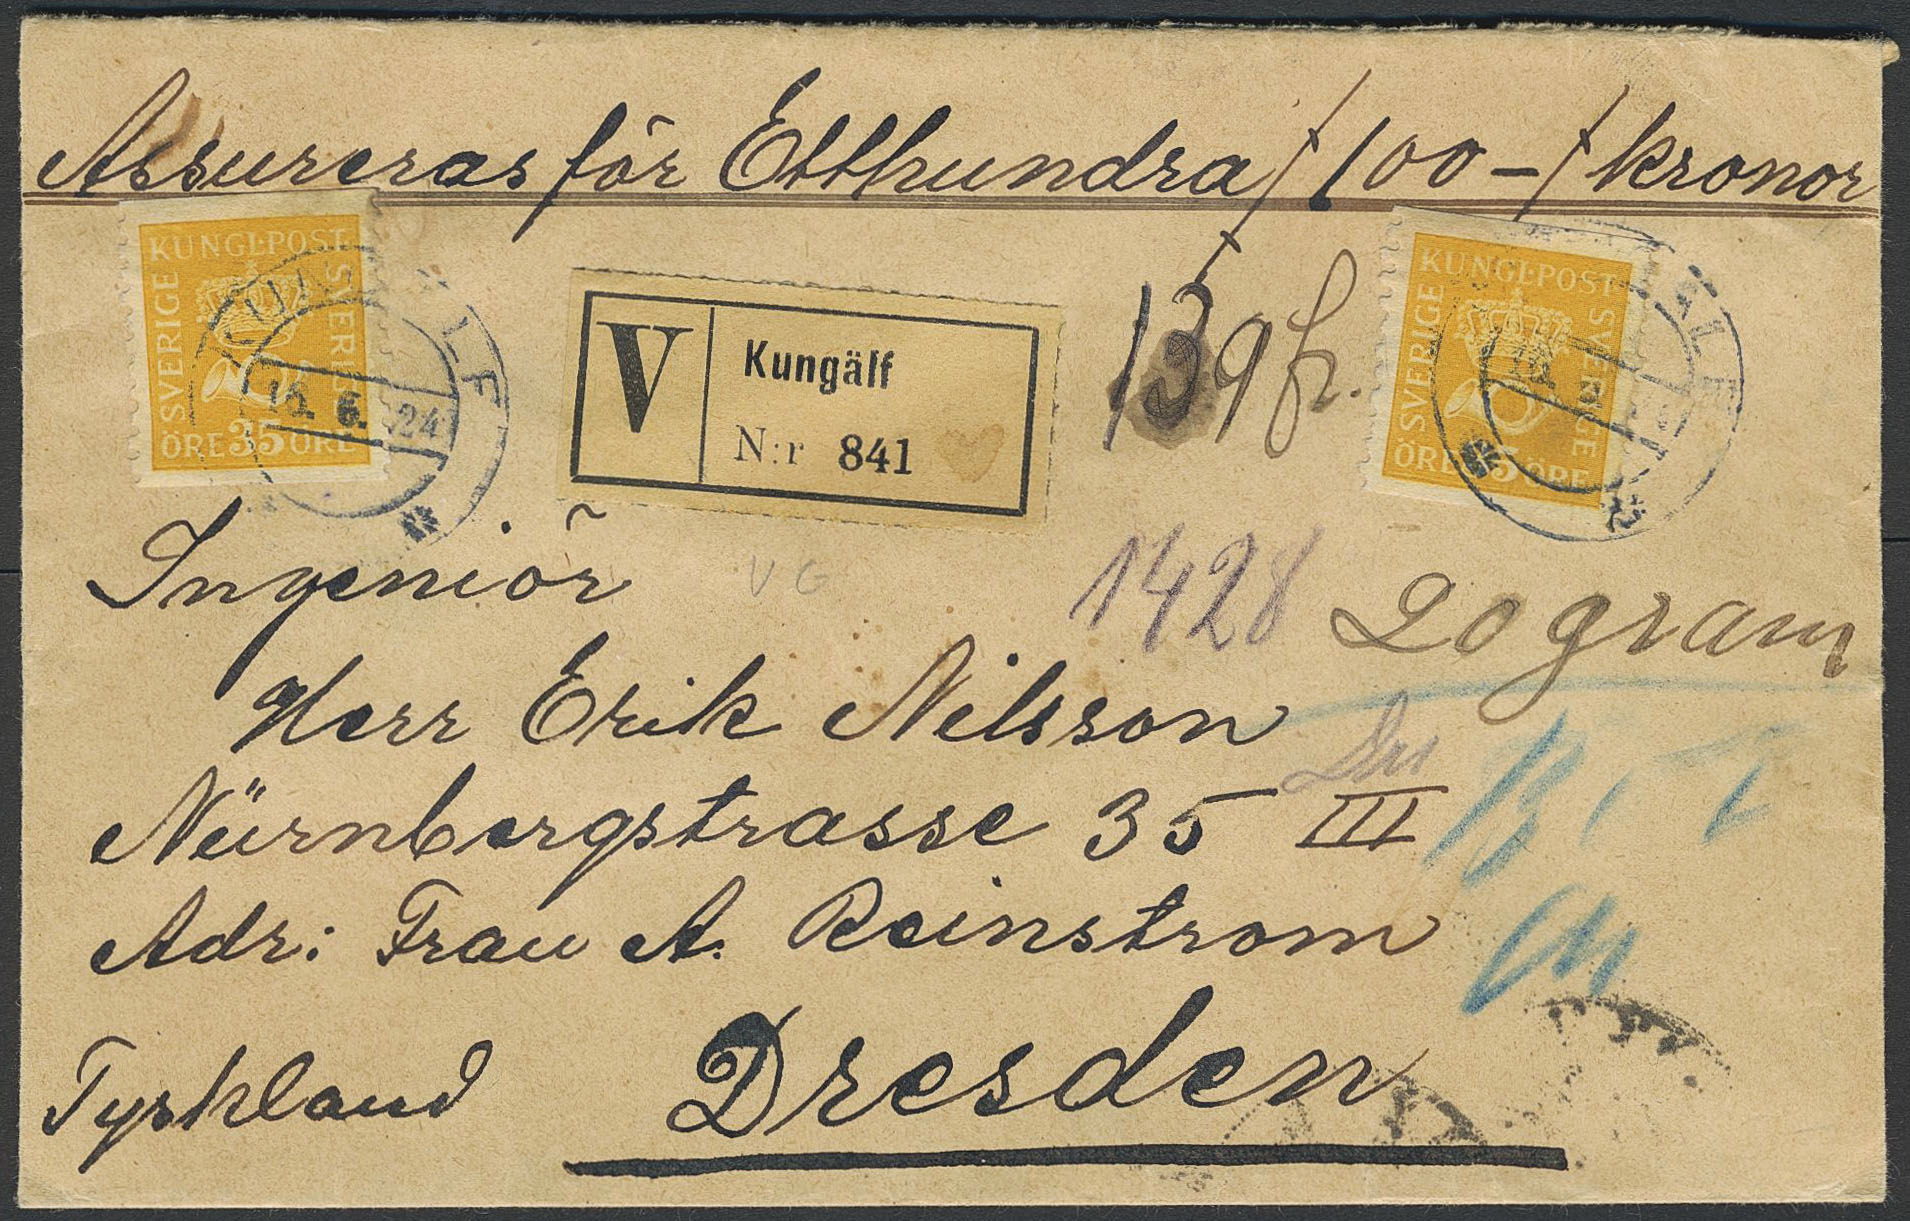 Assureras för Etthundra / 100 - / kronor
KUNGL·POST
SVERIGE
SVERIGE
ÖRE 35 ÖRE
LF
24
V
Kungälf
N:r 841
139 fr.
KUNGL·POST
SVERIGE
SVERIGE
ÖRE 35 ÖRE
ÄLF
Ingeniör
VG
1428
20 gram
Herr Erik Nilsson
Nürnbergstrasse 35 III
Adr: Frau A. Reinstrom
Tyskland
Dresden